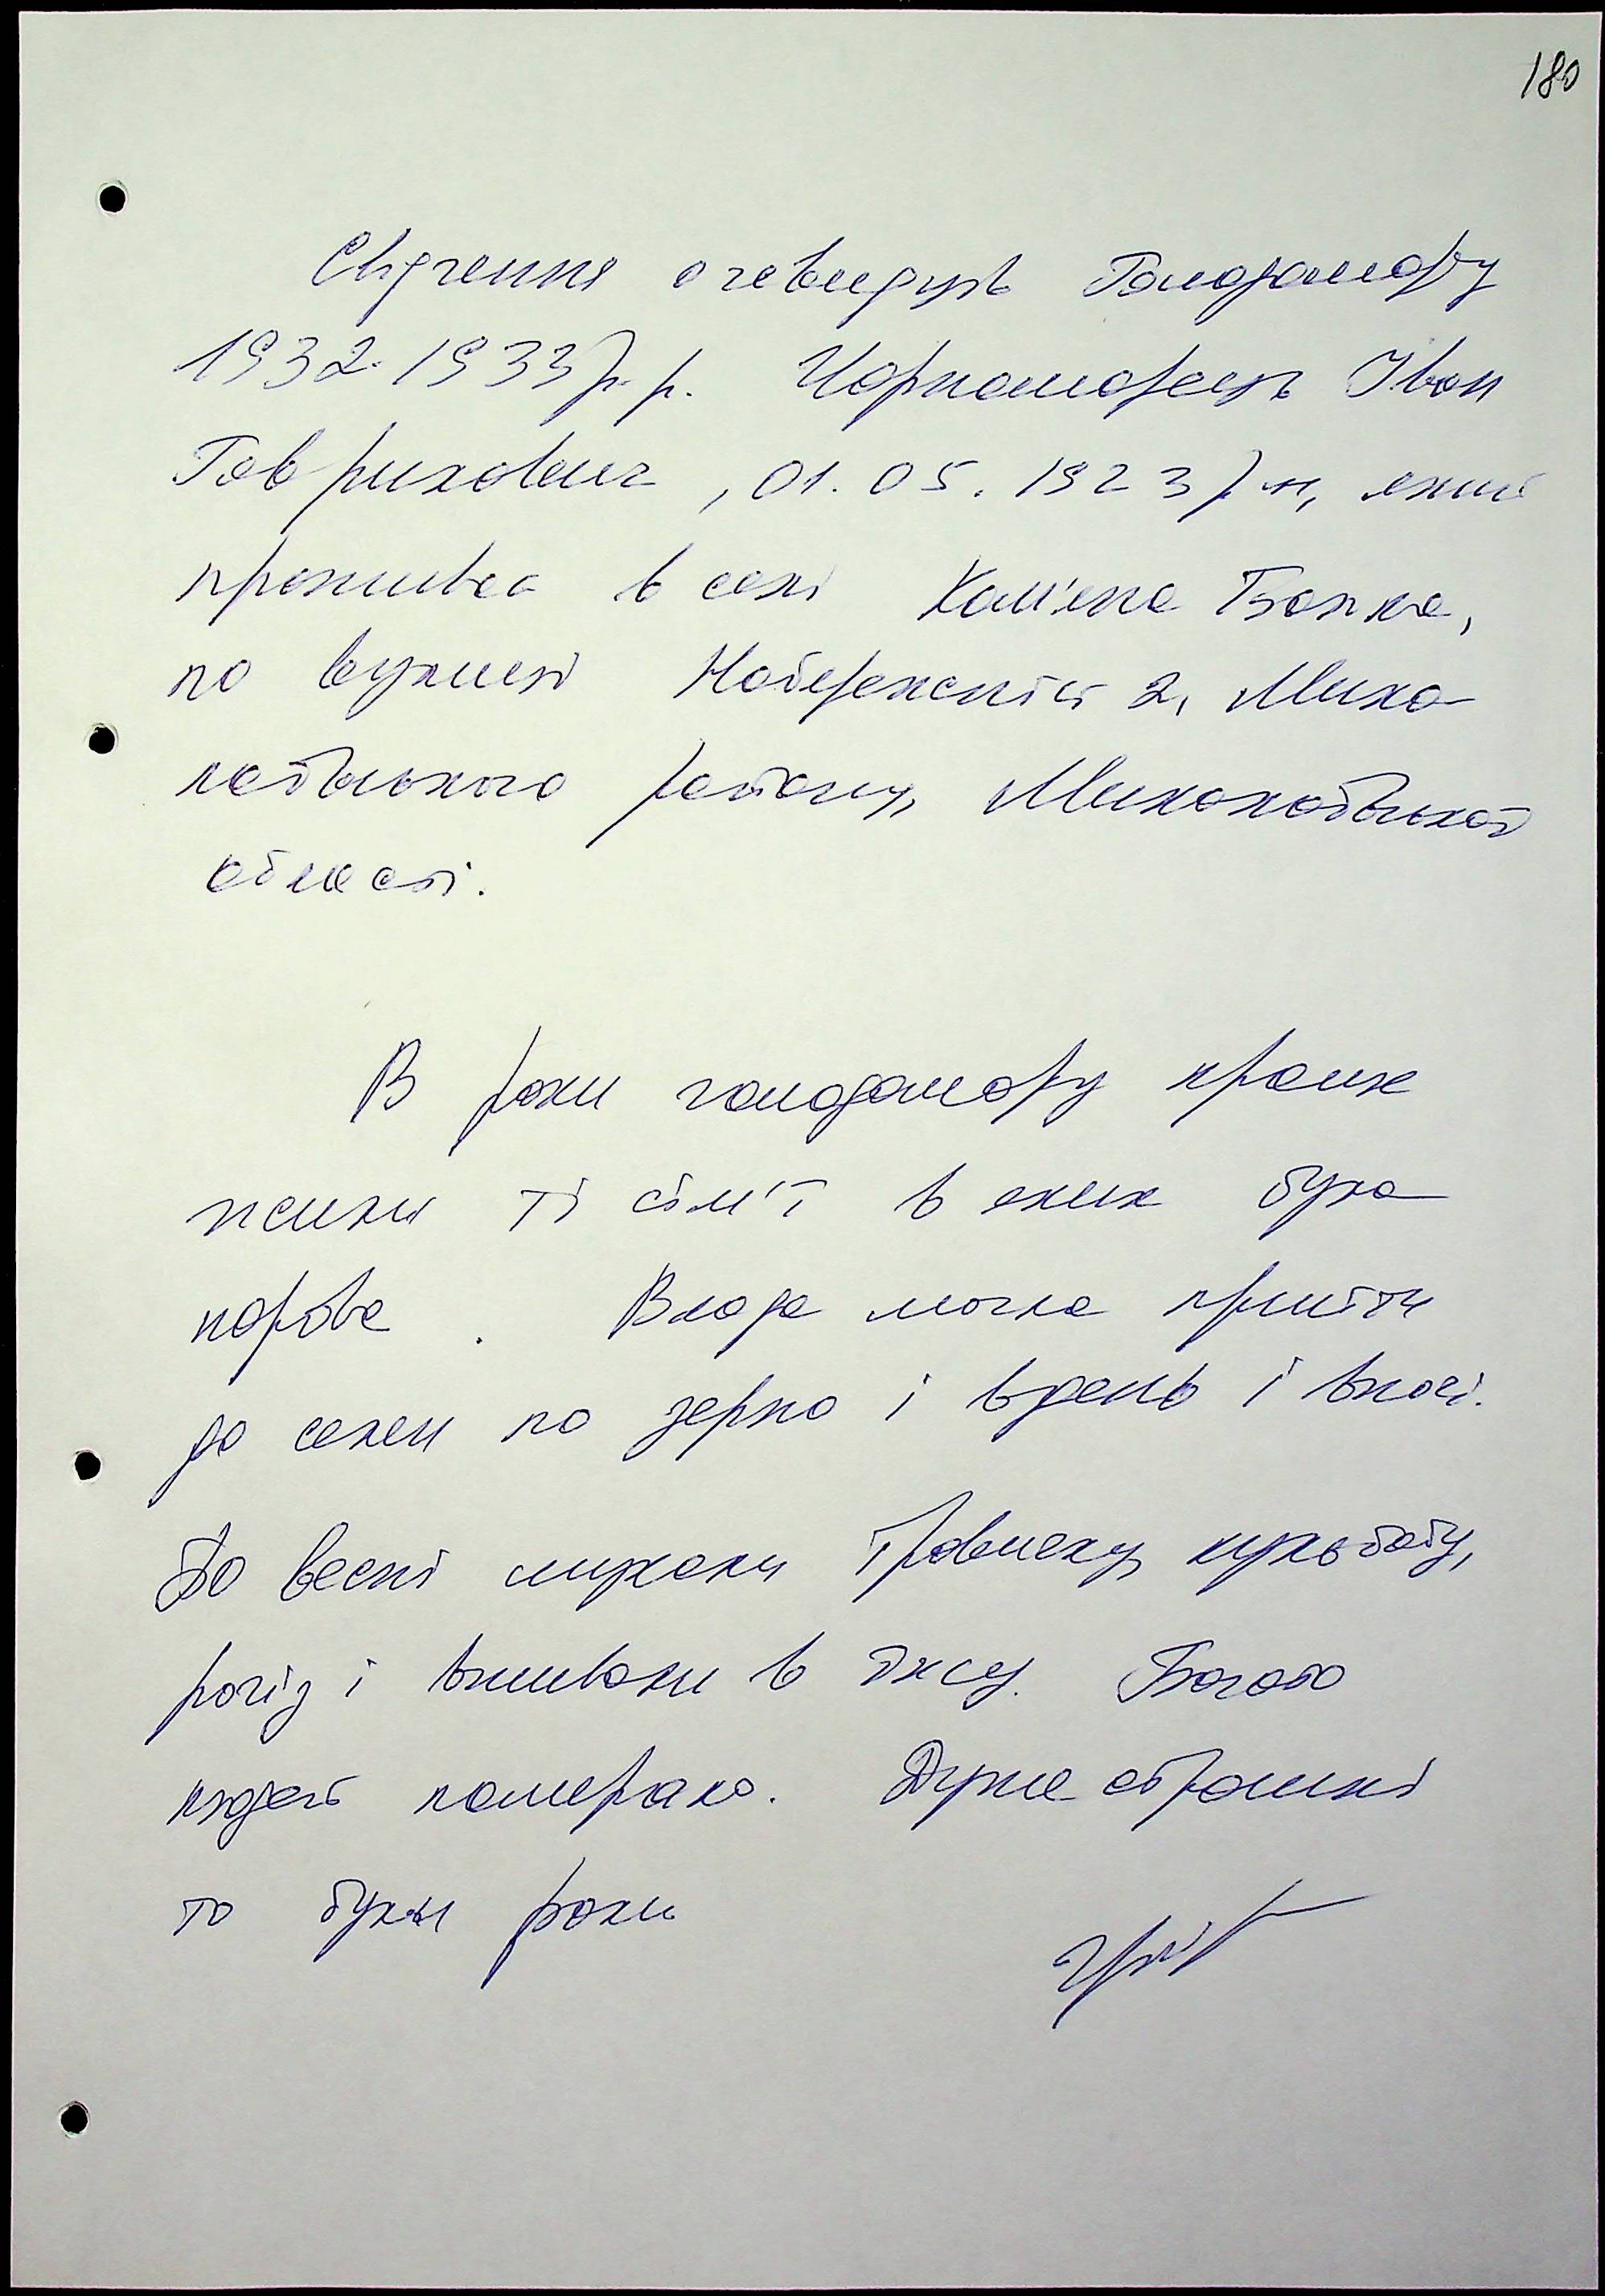 180
Свідчення очевидців Голодомору
1932-1933 р.р. Чорноморець Іван
Гаврилович, 01.05.1923 р.н, який
проживає в селі Кам'яна Балка,
по вулиці Набережній 2, Мико-
лаївського району, Миколаївської
області.
В роки голодомору краще
жили ті сім'ї в яких була
корова. Влада могла прийти
до селян по зерно і вдень і вночі.
До весні шукали травичку, кульбабу,
рогіз і вживали в їжу. Багато
людей померало. Дуже страшні
то були роки